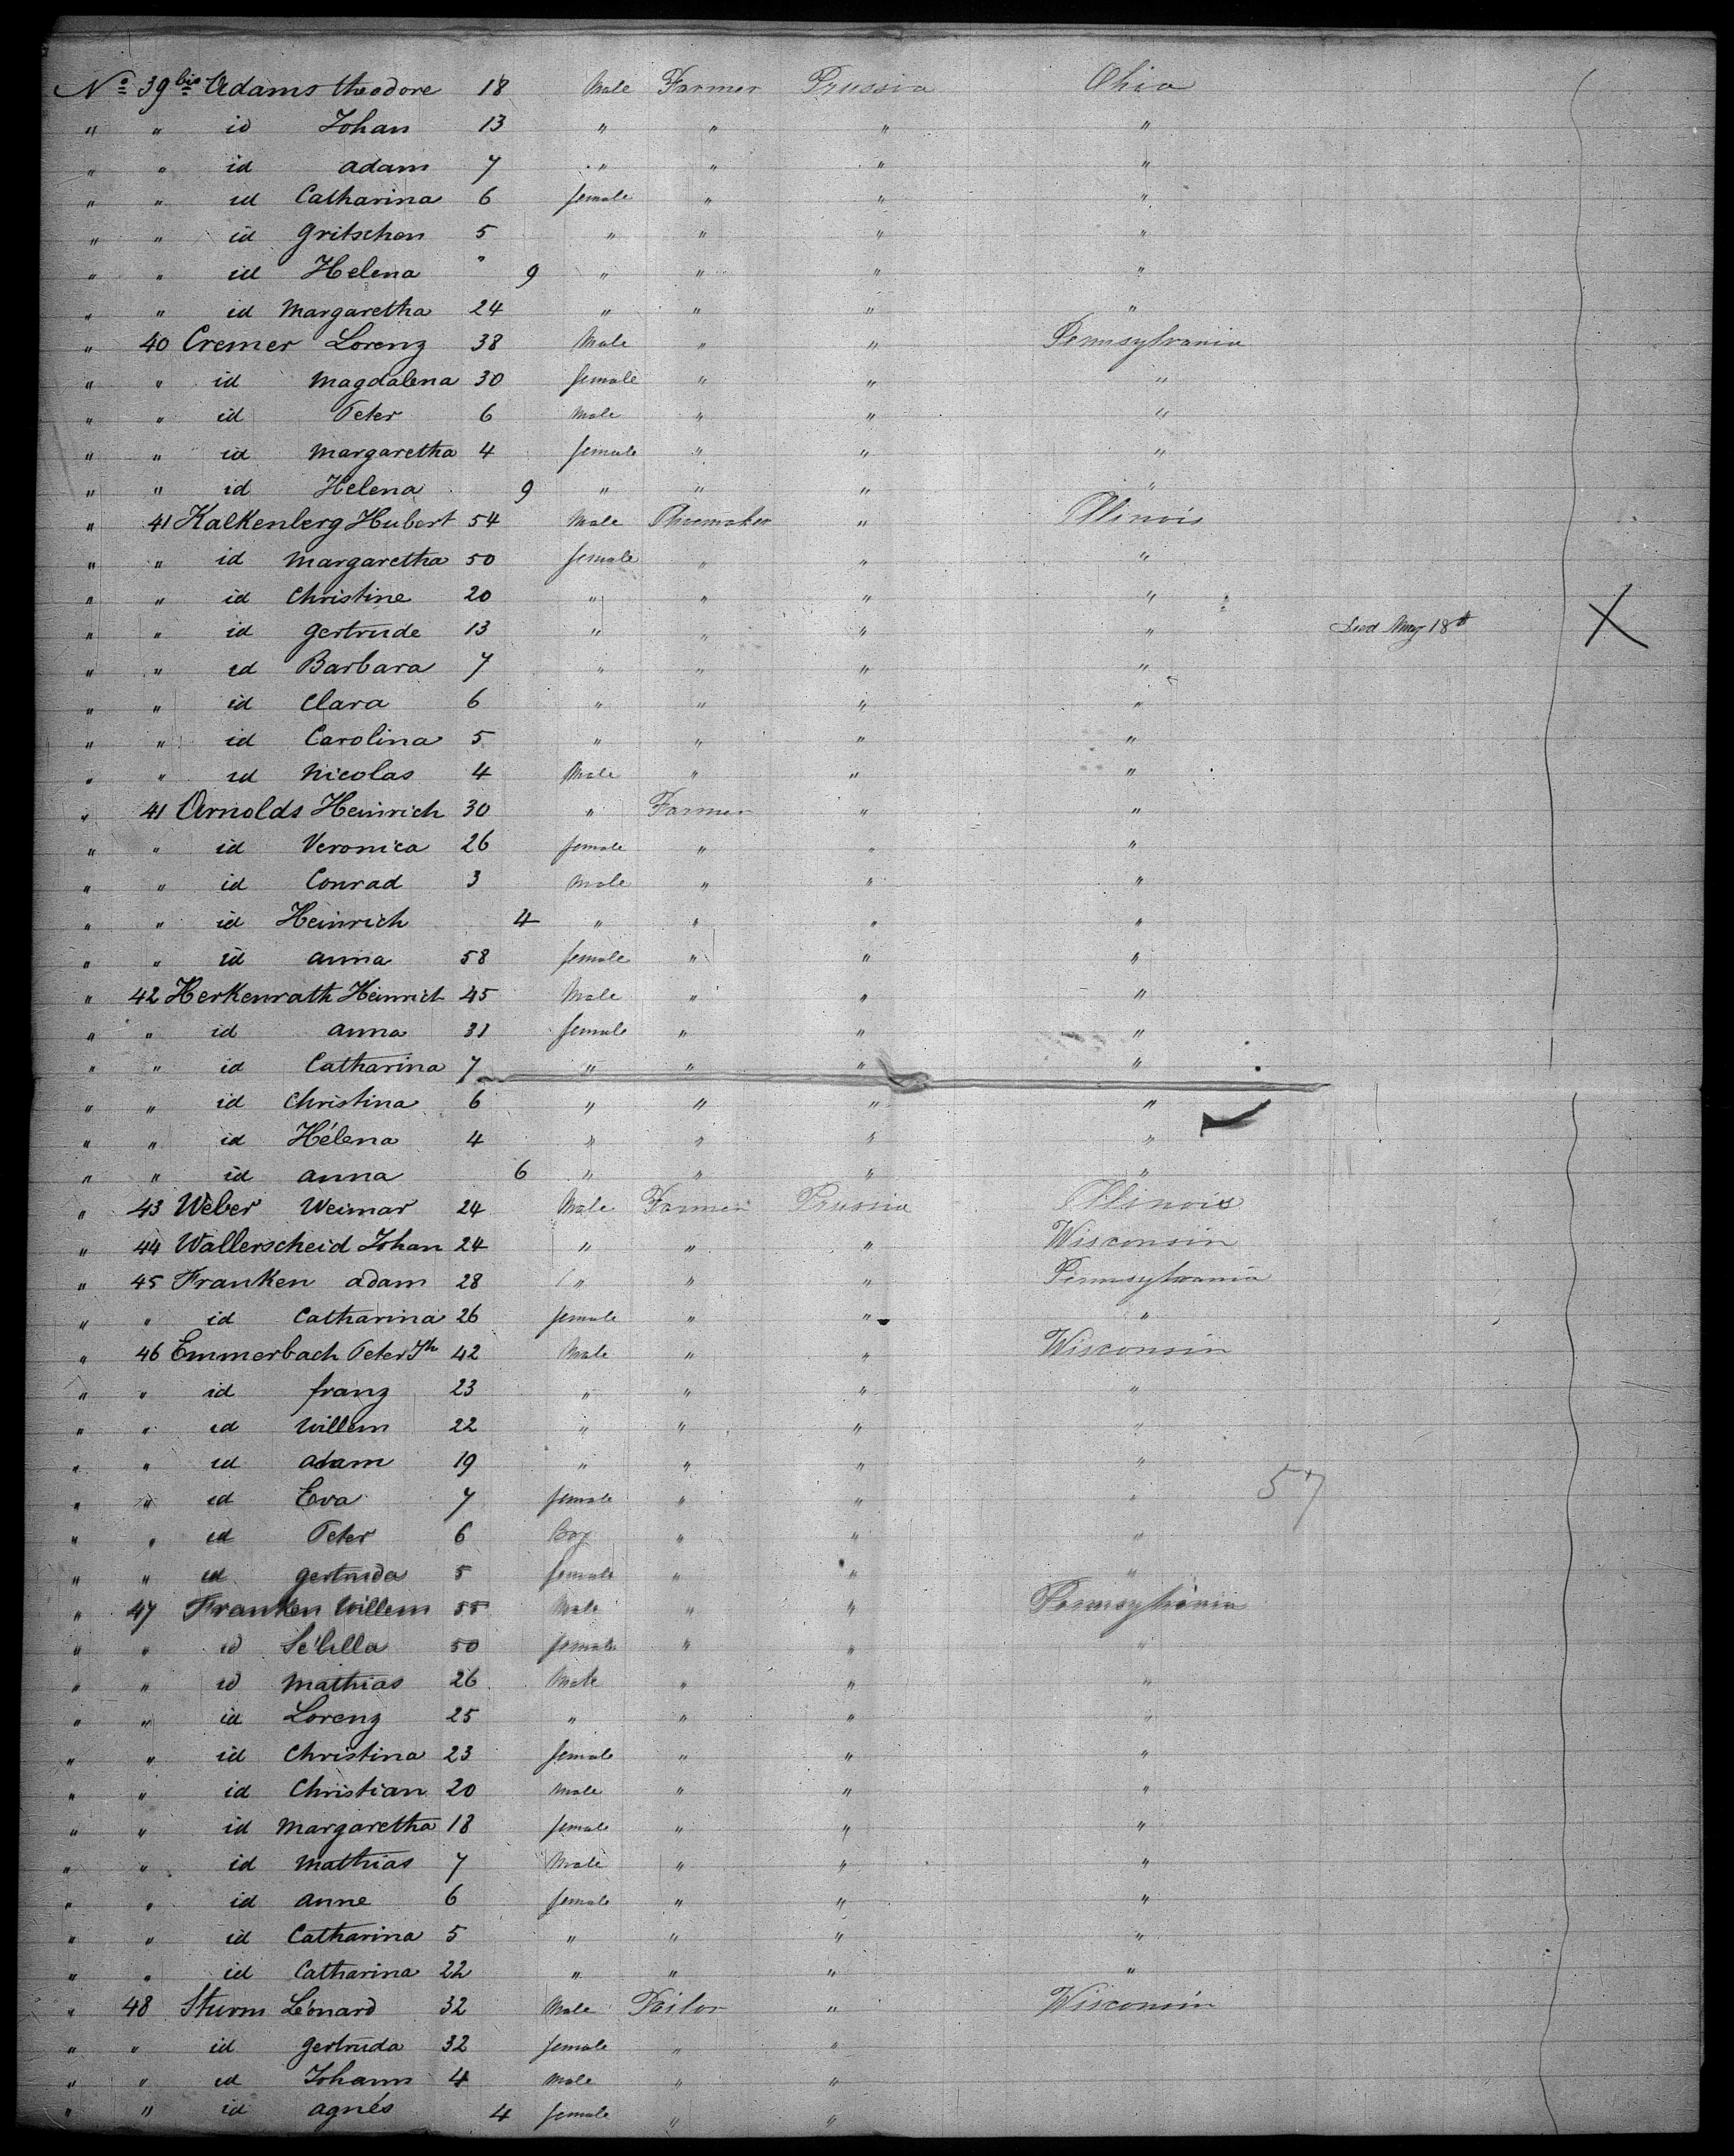 No 39 bis Adams theodore 18 Male Farmer Prussia Ohio
" " id Johan 13 " " " "
" " id adam 7 " " " "
" " id Catharina 6 female " " "
" " id gritschen 5 " " " "
" " id Helena " 9 " " " "
" " id Margaretha 24 " " " "
" 40 Cremer Lorenz 38 Male " " Pennsylvania
" " id Magdalena 30 female " " "
" " id Peter 6 Male " " "
" " id Margaretha 4 female " " "
" " id Helena 9 " " " "
" 41 Kalkenberg Hubert 54 Male Shoemaker " Illinois
" " id Margaretha 50 female " " "
" " id Christine 20 " " " "
" " id gertrude 13 " " " " Died May 18th X
" " id Barbara 7 " " " "
" " id Clara 6 " " " "
" " id Carolina 5 " " " "
" " id Nicolas 4 Male " " "
" 41 Arnolds Heinrich 30 " Farmer " "
" " id Veronica 26 female " " "
" " id Conrad 3 Male " " "
" " id Heinrich 4 " " " "
" " id anna 58 female " " "
" 42 Herkenrath Heinrich 45 Male " " "
" " id anna 31 female " " "
" " id Catharina 7 " " " "
" " id Christina 6 " " " "
" " id Hélena 4 " " " "
" " id anna 6 " " " "
" 43 Weber Weimar 24 Male Farmer Prussia Illinois
" 44 Wallerscheid Johan 24 " " " Wisconsin
" 45 Franken adam 28 " " " Pennsylvania
" " id Catharina 26 female " " "
" 46 Emmerbach Peter Jh 42 Male " " Wisconsin
" " id franz 23 " " " "
" " id Willem 22 " " " "
" " id adam 19 " " " "
" " id Eva 7 female " " " 57
" " id Peter 6 Boy " " "
" " id gertruda 5 female " " "
" 47 Franken Willem 55 Male " " Pennsylvania
" " id Sébilla 50 female " " "
" " id Mathias 26 Male " " "
" " id Lorenz 25 " " " "
" " id Christina 23 female " " "
" " id Christian 20 Male " " "
" " id Margaretha 18 female " " "
" " id Mathias 7 Male " " "
" " id anne 6 female " " "
" " id Catharina 5 " " " "
" " id Catharina 22 " " " "
" 48 Sturm Léonard 32 Male Tailor " Wisconsin
" " id gertruda 32 female " "
" " id Johann 4 Male " "
" " id agnés 4 female " "